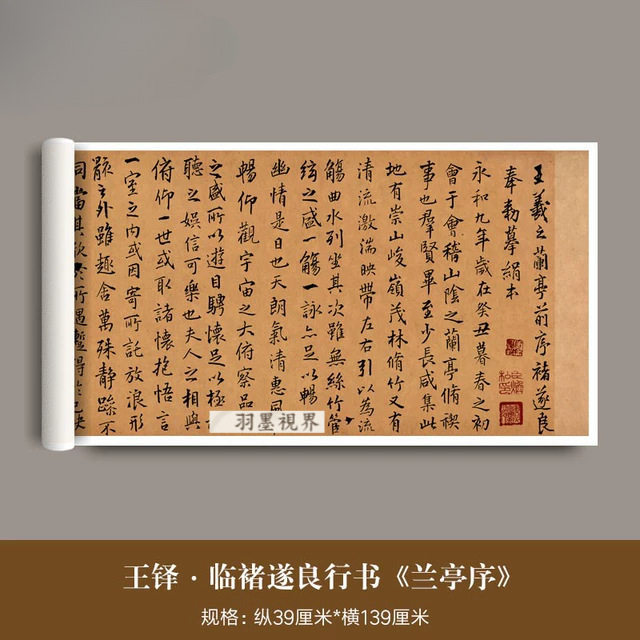 王羲之蘭亭前序褚遂良
奉勅摹絹本
永和九年歲在癸丑暮春之初
會于會稽山陰之蘭亭脩禊
事也羣賢畢至少長咸集此
地有崇山峻嶺茂林脩竹又有
清流激湍映帶左右引以為流
觴曲水列坐其次雖無絲竹管
絃之盛一觴一詠亦足以暢
幽情是日也天朗氣清惠風
暢仰觀宇宙之大俯察品
之盛所以遊目騁懷足以極
聽之娛信可樂也夫人之相與
俯仰一世或取諸懷抱悟言
一室之內或因寄所託放浪形
骸之外雖趣舍萬殊靜躁不
同當其欣於所遇蹔得於己快
羽墨視界
王铎·临褚遂良行书《兰亭序》
规格: 纵39厘米*横139厘米